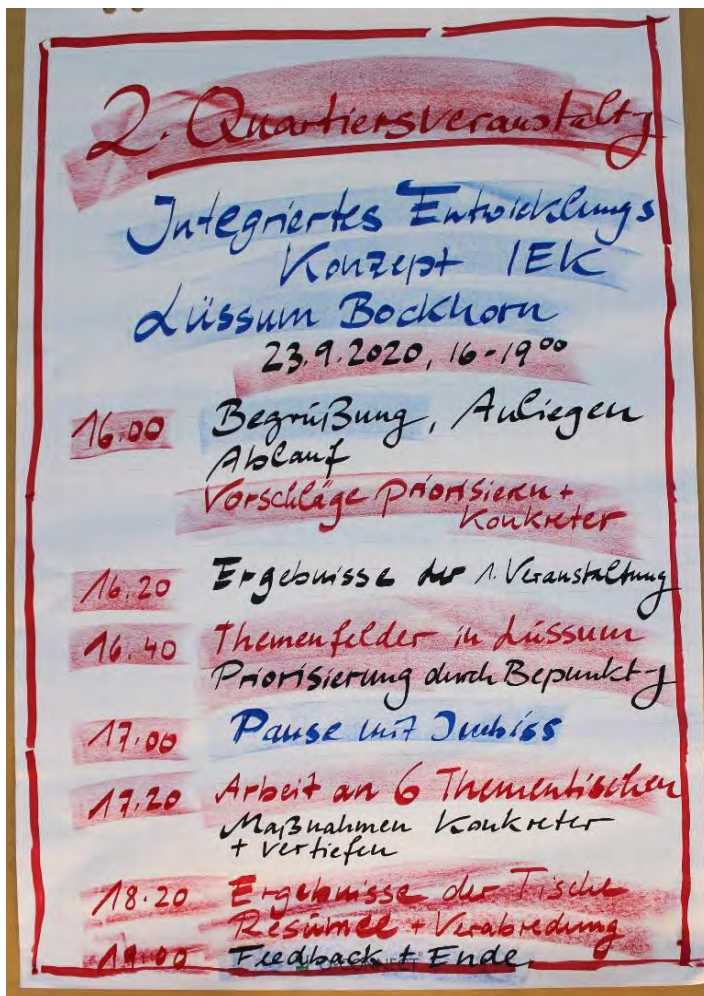 2. Quartiersveranstaltg
Integriertes Entwicklungs
Konzept IEK
Lüssum Bockhorn
23.9.2020, 16-19⁰⁰
16.00 Begrüßung, Anliegen
Ablauf
Vorschläge priorisieren +
Konkreter
16.20 Ergebnisse der 1. Veranstaltung
16.40 Themenfelder in Lüssum
Priorisierung durch Bepunktg
17.00 Pause mit Imbiss
17.20 Arbeit an 6 Thementischen
Maßnahmen Konkreter
+ vertiefen
18.20 Ergebnisse der Tische
Resümee + Verabredung
19.00 Feedback + Ende